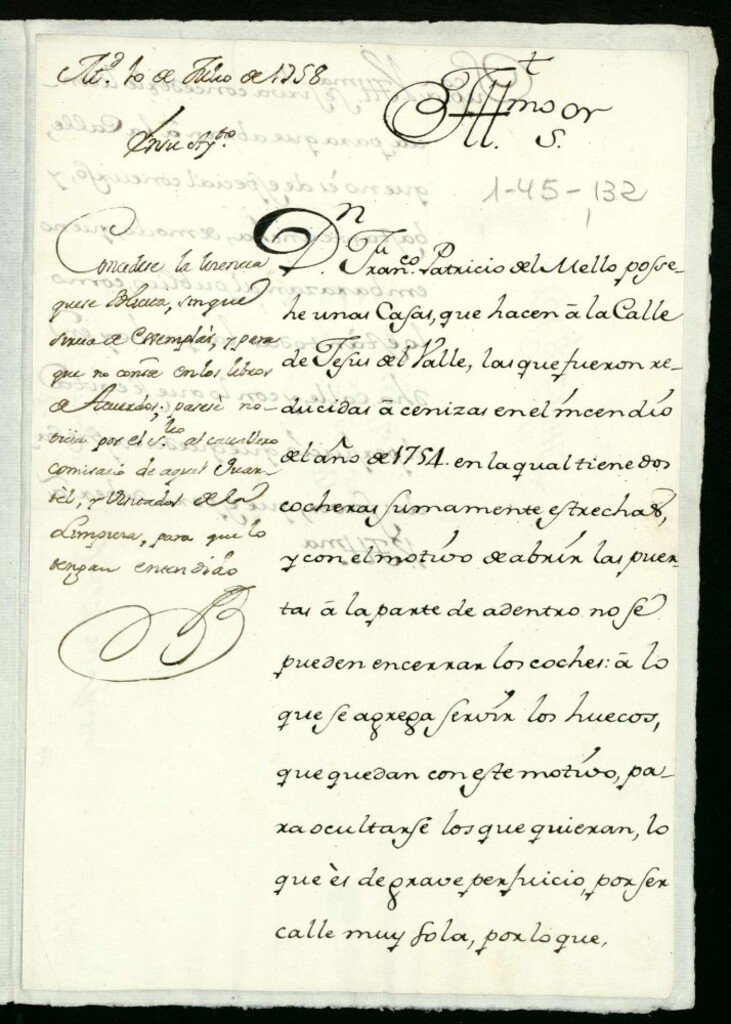 M.d 10 de Julio de 1758
En su Ay.to
Ill.mo S.or
1-45-132
1
Concedese la lizencia
que se solicita, sin que
sirva de exemplar, y para
que no conste en los libros
de Acuerdos; pasese no-
ticia por el S.rio al cavallero
comisario de aquel Quar-
tel, y Visitador de la
Limpieza, para que lo
tengan entendido
D.n Fran.co Patricio del Mello posse-
he unas Casas, que hacen â la Calle
de Jesus del Valle, las que fueron re-
ducidas â cenizas en el incendio
del año de 1754. en la qual tiene dos
cocheras sumamente estrechas,
y con el motivo de abrir las puer-
tas â la parte de adentro no se
pueden encerrar los coches: â lo
que se agrega servir los huecos,
que quedan con este motivo, pa-
ra ocultarse los que quieran, lo
que ès de grave perjuicio, por ser
calle muy sola, por lo que,